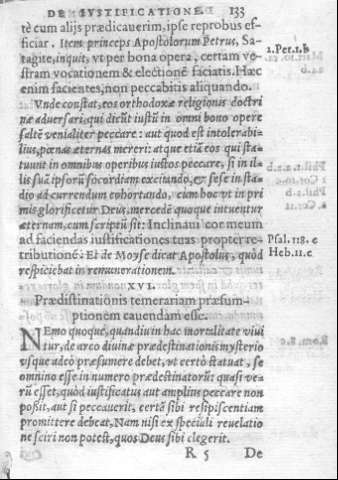 DE IVSTIFICATIONE. 133
tè cum alijs prædicauerim, ipse reprobus ef-
ficiar. Item princeps Apostolorum Petrus, Sa-
tagite, inquit, vt per bona opera, certam ve-
stram vocationem & electionē faciatis. Hæc
enim facientes, non peccabitis aliquando.
1.Pet.1.b
Vnde constat, eos orthodoxæ religionis doctri
næ aduersari, qui dicūt iustū in omni bono opere
saltē venialiter peccare: aut quod est intolerabi-
lius, pœnas æternas mereri: atque etiā eos qui sta-
tuunt in omnibus operibus iustos peccare, si in il-
lis suā ipsorū socordiam excitando, & sese in sta-
dio ad currendum cohortando, cum hoc vt in pri
mis glorificetur Deus, mercedē quoque intuentur
æternam, cum scriptū sit: Inclinaui cor meum
ad faciendas iustificationes tuas propter re-
tributionē: Et de Moyse dicat Apostolus, quòd
respiciebat in remunerationem.
Psal.118.c
Heb.11.e
XVI.
Prædestinationis temerariam præsum-
ptionem cauendam esse.
NEmo quoque, quandiu in hac mortalitate viui
tur, de arcano diuinæ prædestinationis mysterio
vsque adeò præsumere debet, vt certò statuat, se
omnino esse in numero prædestinatorū: quasi ve-
rū esset, quòd iustificatus aut amplius peccare non
possit, aut si peccauerit, certā sibi resipiscentiam
promittere debeat. Nam nisi ex speciali reuelatio
ne sciri non potest, quos Deus sibi elegerit.
R 5 De